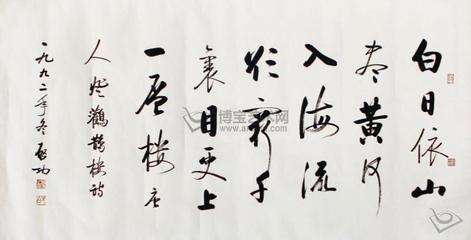 白日依山
尽黄河
入海流
欲窮千
里目更上
一层楼 唐
人登鸛鵲楼诗
一九九二年冬 启功
博宝艺术网